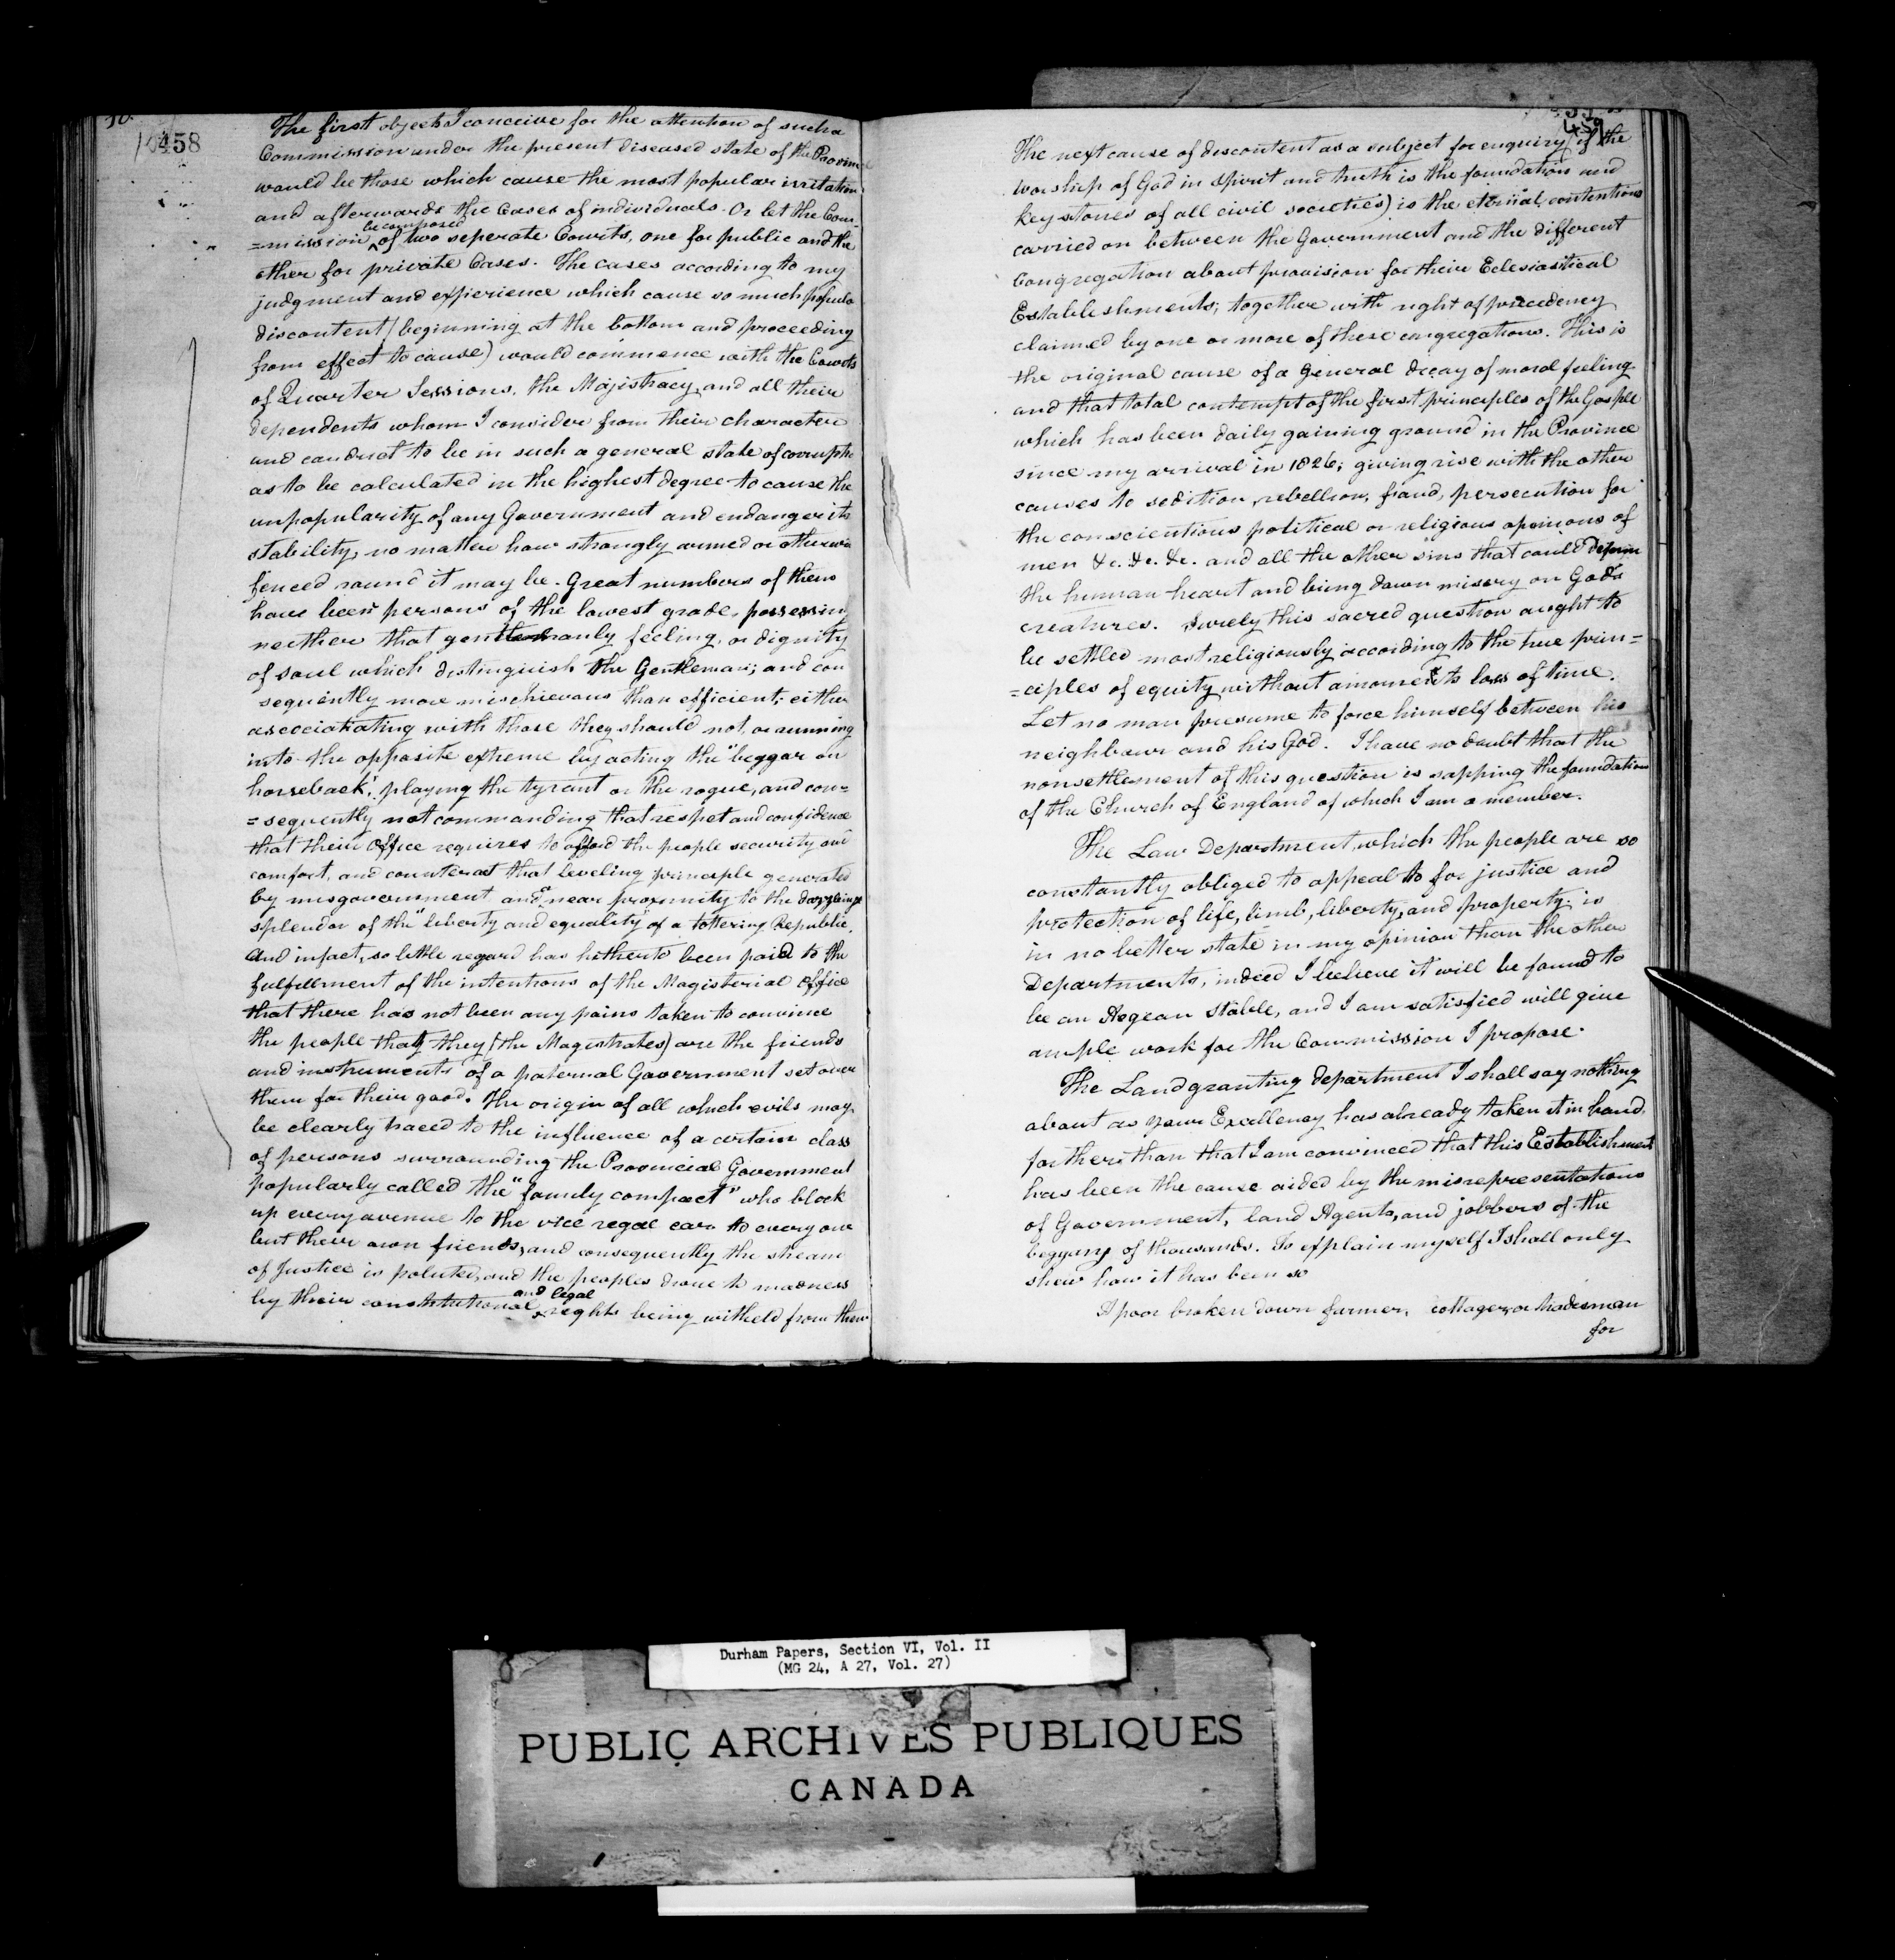 458
The first objects I conceive for the attention of such a
Commission under the present diseased state of the Provin
would be those which cause the most popular irritation
and afterwards the Cases of individuals. Or let the Com-
be composed
=mission of two seperate Courts, one for public and the
other for private Cases. The cases according to my
judgment and experience which cause so much popula
discontent (beginning at the bottom and proceeding
from effect to cause) would commence with the Courts
of Quarter Sessions, the Majistracy, and all their
dependents whom I consider from their character
and conduct to be in such a general state of corrupti
as to be calculated in the highest degree to cause the
unpopularity of any Government and endanger its
stability, no matter how strongly armed or otherwis
fenced round it may be. Great numbers of them
have been persons of the lowest grade, possessing
neither that gentlemanly feeling, or dignity
of soul which distinguish the Gentleman; and con
sequently more mischievous than efficient; either
asocciatiating with those they should not, or running
into the opposite extreme by acting the "beggar on
horseback", playing the tyrant or the rogue, and con=
=sequently not commanding that respet and confidence
that their Office requires to afford the people security and
comfort, and counteract that leveling principle generated
by misgovernment and a near proximity to the dazzleing
splendor of the "liberty and equality" of a tottering Republic.
And infact, so little regard has hitherto been paid to the
fulfillment of the intentions of the Magisterial Office
that there has not been any pains taken to convince
the people that they (the Magistrates) are the friends
and instruments of a paternal Government set over
them for their good. The origin of all which evils may
be clearly traced to the influence of a certain class
of persons surrounding the Provincial Government
popularly called the "family compact" who block
up every avenue to the vice regal ear to every one
but their own friends, and consequently the stream
of Justice is poluted, and the peoples drove to madness
and legal
by their constitutional rights being witheld from them
459
The next cause of discontent as a subject for enquiry (if the
worship of God in spirit and truth is the foundation and
key stones of all civil societies) is the eternal contentions
carried on between the Government and the different
Congregation about provision for their Eclesiastical
Establishments; together with right of precedency
claimed by one or more of these congregations. This is
the original cause of a general decay of moral feeling
and that total contempt of the first principles of the Gosple
which has been daily gaining ground in the Province
since my arrival in 1826; giving rise with the other
causes to sedition, rebellion, fraud, persecution for
the conscientious political or religious opinions of
men &c. &c. &c. and all the other sins that could
the human heart and bring down misery on God's
creatures. Surely this sacred question aught to
be settled most religiously according to the true prin=
=ciples of equity without a moments loss of time.
Let no man presume to force himself between his
neighbour and his God. I have no doubt that the
nonsettlement of this question is sapping the foundation
of the Church of England of which I am a member.
The Law Department, which the people are so
constantly obliged to appeal to for justice and
protection of life, limb, liberty, and property, is
in no better state in my opinion than the other
Departments, indeed I believe it will be found to
be an Aegean Stable, and I am satisfied will give
ample work for the Commission I propose.
The Landgranting department I shall say nothing
about as your Excellency has already taken it in hand,
farther than that I am convinced that this Establishment
has been the cause aided by the misrepresentations
of Government, land Agents, and jobbers of the
beggary of thousands. To explain myself I shall only
shew how it has been so
A poor broken down farmer, cottager, or tradesman
for
Durham Papers, Section VI, Vol. II
(MG 24, A 27, Vol. 27)
PUBLIC ARCHIVES PUBLIQUES
CANADA